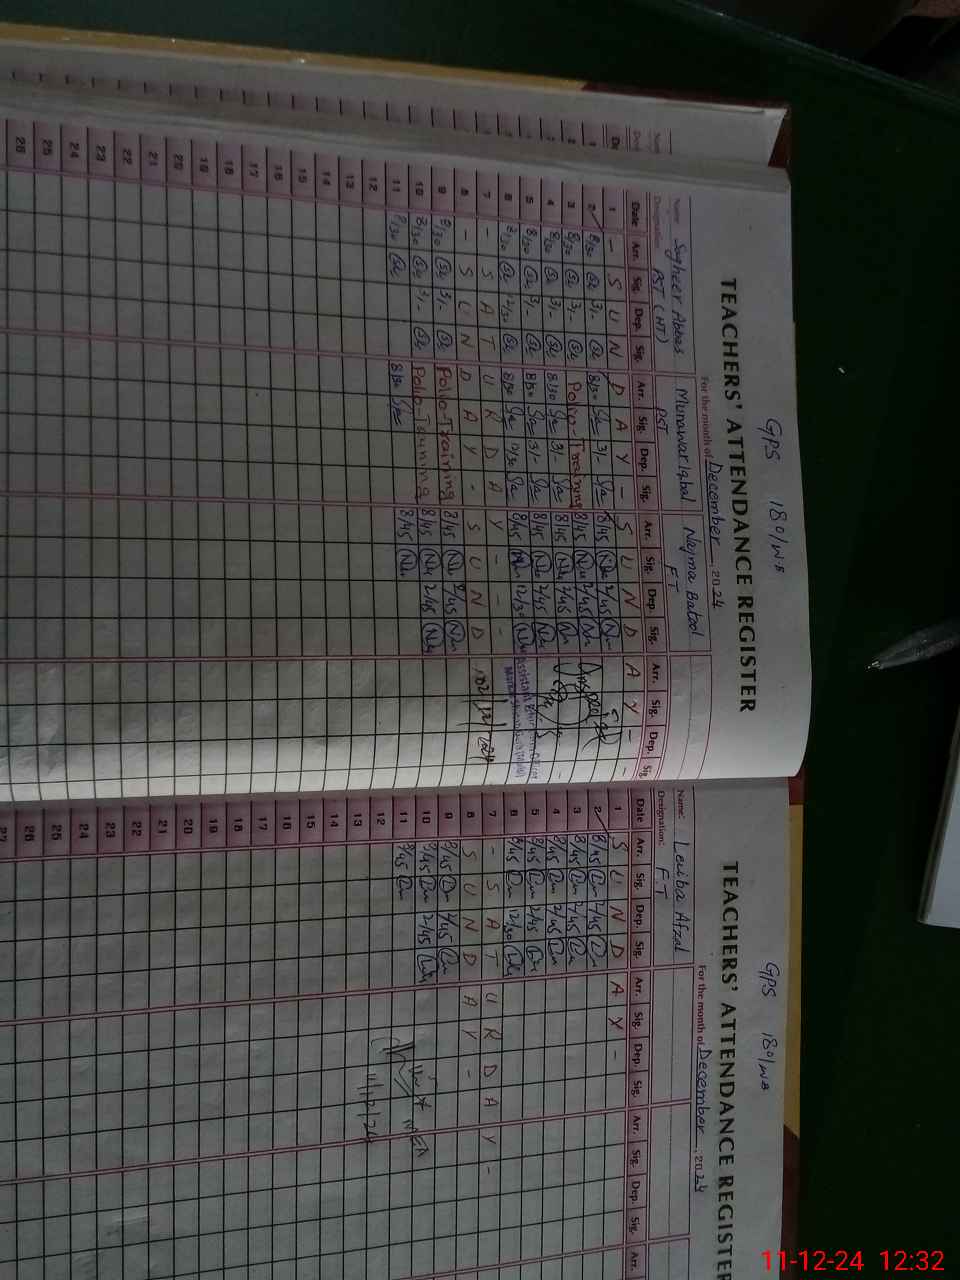 GPS 180/W.B
TEACHERS' ATTENDANCE REGISTER
For the month of December, 2024
Name Sagheer Abbas Munawar Iqbal Najma Batool
Designation PST (HT) PST FT
Date Arr. Sig. Dep. Sig. Arr. Sig. Dep. Sig. Arr. Sig. Dep. Sig. Arr. Sig. Dep. Sig.
1 - S U N D A Y - S U N D A Y - -
2 8/30 3/- 8/30 3/- 8/45 2/45
3 8/30 3/- Polio-Training 8/45 2/45
4 8/30 3/- 8/30 3/- 8/45 2/45
5 8/30 3/- 8/30 3/- 8/45 2/45
6 8/30 12/30 8/30 12/30 8/45 12/30
7 - S A T U R D A Y - - -
8 - S U N D A Y - S U N D
9 8/30 3/- Polio-Training 8/45 2/45
10 8/30 3/- Polio-Training 8/45 2/45
11 8/30 8/30 8/45
12
13
14
15
16
17
18
19
20
21
22
23
24
25
26
GPS 180/WB
TEACHERS' ATTENDANCE REGISTER
For the month of December, 2024
Name: Laiba Afzal
Designation: FT
Date Arr. Sig. Dep. Sig. Arr. Sig. Dep. Sig. Arr. Sig. Dep. Sig. Arr.
1 S U N D A Y -
2 8/45 2/45
3 8/45 2/45
4 8/45 2/45
5 8/45 2/45
6 8/45 12/30
7 - S A T U R D A Y -
8 S U N D A Y -
9 8/45 2/45
10 8/45 2/45
11 8/45
12
13
14
15
16
17
18
19
20
21
22
23
24
25
26
27
Visit MEA
11/12/24
11-12-24 12:32